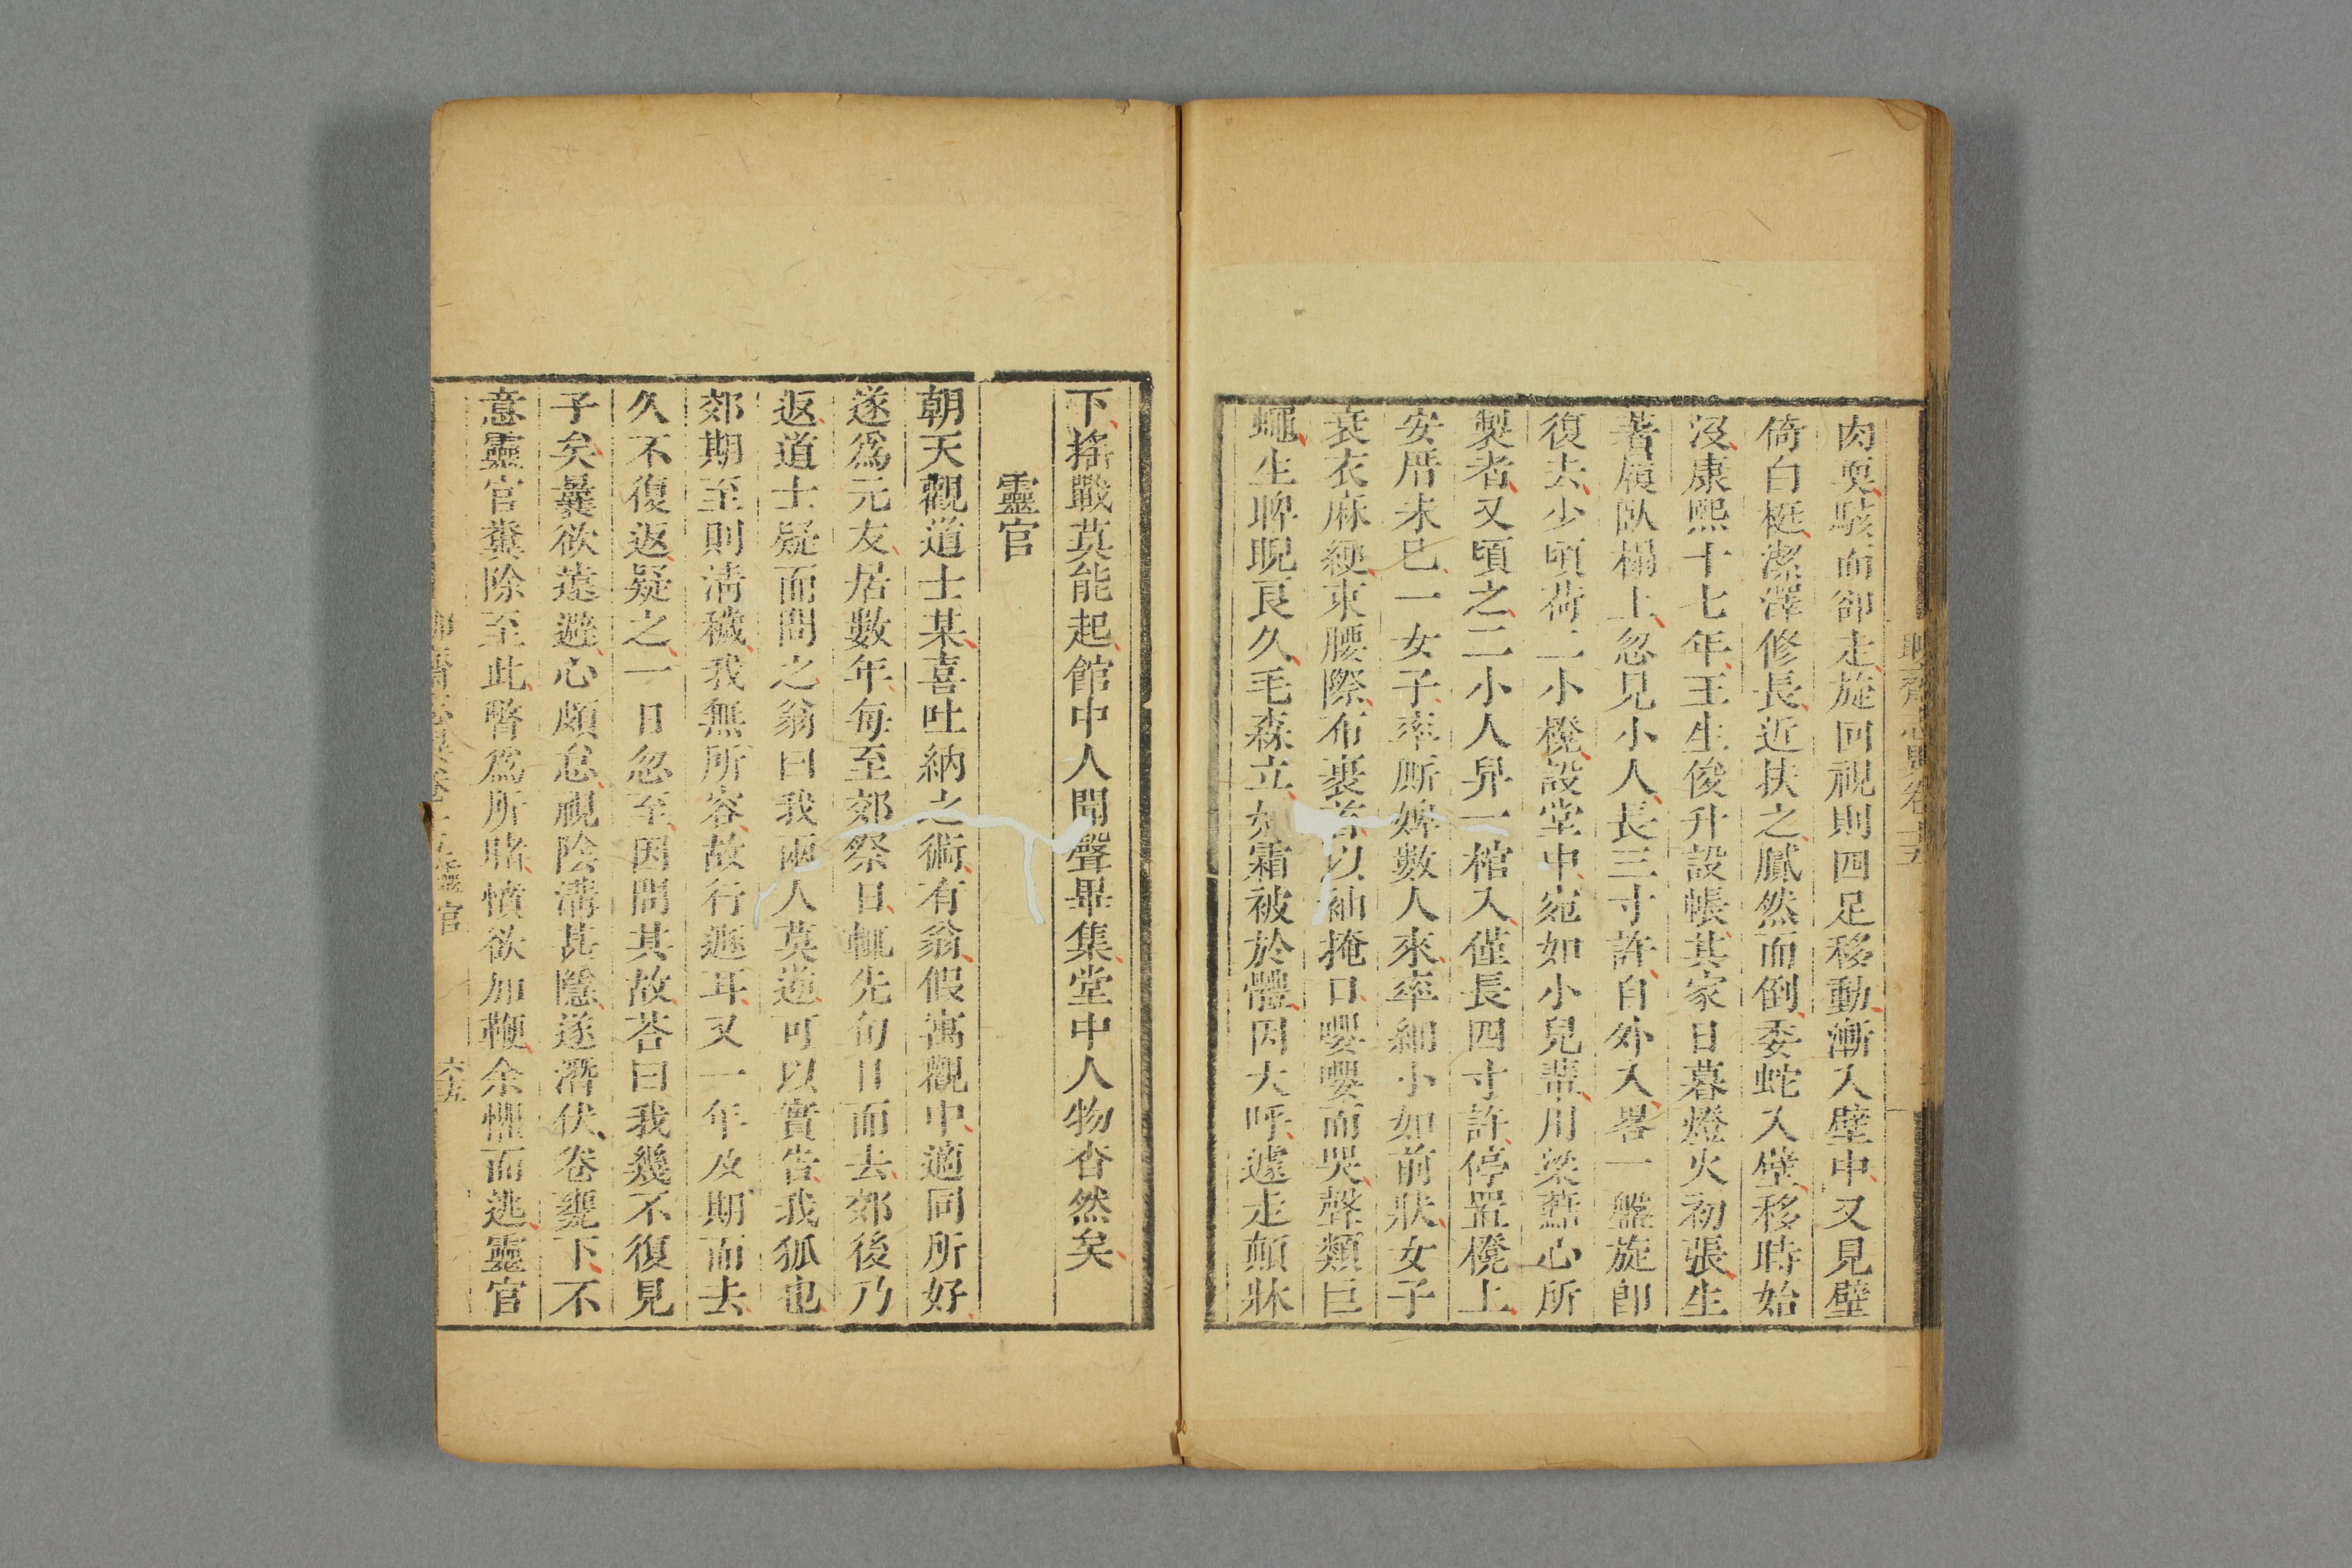 肉耎駭而卻走旋回視則四足移動漸入壁中又見壁
倚白梃潔澤修長近扶之膩然而倒委蛇入壁移時始
沒康熙十七年王生俊升設帳其家日暮燈火初張生
著履臥榻上忽見小人長三寸許自外入畧一盤旋卽
復去少頃荷二小櫈設堂中宛如小兒輩用梁䕽心所
製者又頃之二小人舁一棺入僅長四寸許停置櫈上
安厝未已一女子率厮婢數人來率細小如前狀女子
衰衣麻綆束腰際布裹首以袖掩口嚶嚶而哭聲類巨
蠅生睥睨良久毛森立如霜被於體因大呼遽走顛牀
下搖戰莫能起館中人聞聲畢集堂中人物杳然矣
靈官
朝天觀道士某喜吐納之術有翁假寓觀中適同所好
遂爲元友居數年每至郊祭日輒先旬日而去郊後乃
返道士疑而問之翁曰我兩人莫逆可以實告我狐也
郊期至則淸穢我無所容故行遯耳又一年及期而去
久不復返疑之一日忽至因問其故荅曰我幾不復見
子矣曩欲遠避心頗怠視陰溝甚隱遂潛伏卷甕下不
意靈官糞除至此瞥爲所睹憤欲加鞭余懼而逃靈官
靈官
六五